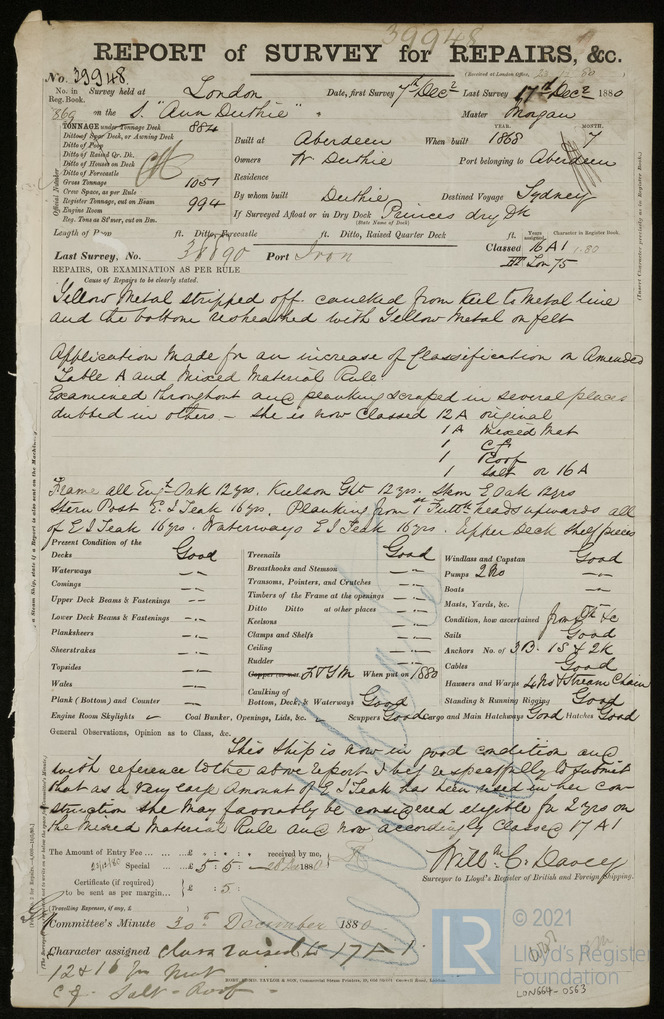 39948
REPORT of SURVEY for REPAIRS, &c.
No. 39948. (Received at London Office, 1880
No. in Reg. Book. Survey held at London Date, first Survey 7th Decr Last Survey 17th Decr 1880
869 on the S. "Ann Duthie" Master Morgan
TONNAGE under Tonnage Deck 884
Ditto of Spar Deck, or Awning Deck
Ditto of Poop
Ditto of Raised Qr. Dk.
Ditto of House on Deck
Ditto of Forecastle
Gross Tonnage 1051
Crew Space, as per Rule
Register Tonnage, cut on Beam 994
Engine Room
Reg. Tons as St'mer, cut on Bm.
Official Number
YEAR. MONTH.
Built at Aberdeen When built 1868 7
Owners W Duthie Port belonging to Aberdeen
Residence
By whom built Duthie Destined Voyage Sydney
If Surveyed Afloat or in Dry Dock Princes dry Dk
(State Name of Dock)
Length of Poop ft. Ditto, Forecastle ft. Ditto, Raised Quarter Deck ft.
Years assigned. Character in Register Book.
Last Survey, No. 38890 Port Iron Classed 16 A 1 1.80
Lon 75
REPAIRS, OR EXAMINATION AS PER RULE
Cause of Repairs to be clearly stated.
Yellow Metal stripped off. caulked from Keel to Metal line
and the bottom resheathed with Yellow Metal on felt
Application made for an increase of Classification on Amended
Table A and Mixed Material Rule.
Examined throughout and planking scraped in several places
dubbed in others – She is now Classed 12 A original
1 A Mixed Mat
1 C.f.
1 Roof
1 Salt or 16 A
Frame all Engh Oak 12 yrs. Keelson Ght 12 yrs. Stem E Oak 12 yrs
Stern Post E. I Teak 16 yrs. Planking from 1st Futth heads upwards all
of E I Teak 16 yrs. Waterways E I Teak 16 yrs. Upper Deck Shelf pieces
Present Condition of the
Decks Good
Waterways
Comings
Upper Deck Beams & Fastenings
Lower Deck Beams & Fastenings
Planksheers
Sheerstrakes
Topsides
Wales
Plank (Bottom) and Counter
Engine Room Skylights
Treenails Good
Breasthooks and Stemson
Transoms, Pointers, and Crutches
Timbers of the Frame at the openings
Ditto Ditto at other places
Keelsons
Clamps and Shelfs
Ceiling
Rudder
F & Y M When put on 1880
Caulking of Bottom, Deck, & Waterways Good
Coal Bunker, Openings, Lids, &c. Scuppers Good
Windlass and Capstan Good
Pumps 2 No
Boats
Masts, Yards, &c.
Condition, how ascertained from Dk &c
Sails Good
Anchors No. of 3B. 1S & 2K
Cables Good
Hawsers and Warps 4 No & Stream Chain
Standing & Running Rigging Good
Cargo and Main Hatchways Good Hatches Good
General Observations, Opinion as to Class, &c.
This Ship is now in good condition and
with reference to the above report I beg respectfully to submit
that as a very large Amount of E I Teak has been used in her con-
struction she may favorably be considered eligible for 2 yrs on
the Mixed Material Rule and now accordingly Classed 17 A 1
The Amount of Entry Fee ... £ : : received by me,
Special ... £ 5 : 5 : 1880
Certificate (if required) £ : 5 :
to be sent as per margin...
(Travelling Expenses, if any, £ )
Willm C. Davey
Surveyor to Lloyd's Register of British and Foreign Shipping.
Committee's Minute 30th December 1880
Character assigned class raised to 17 A 1.
12 & 16 Mat
C f. Salt - Roof -
LR © 2021
Lloyd's Register
Foundation
LON664-0563